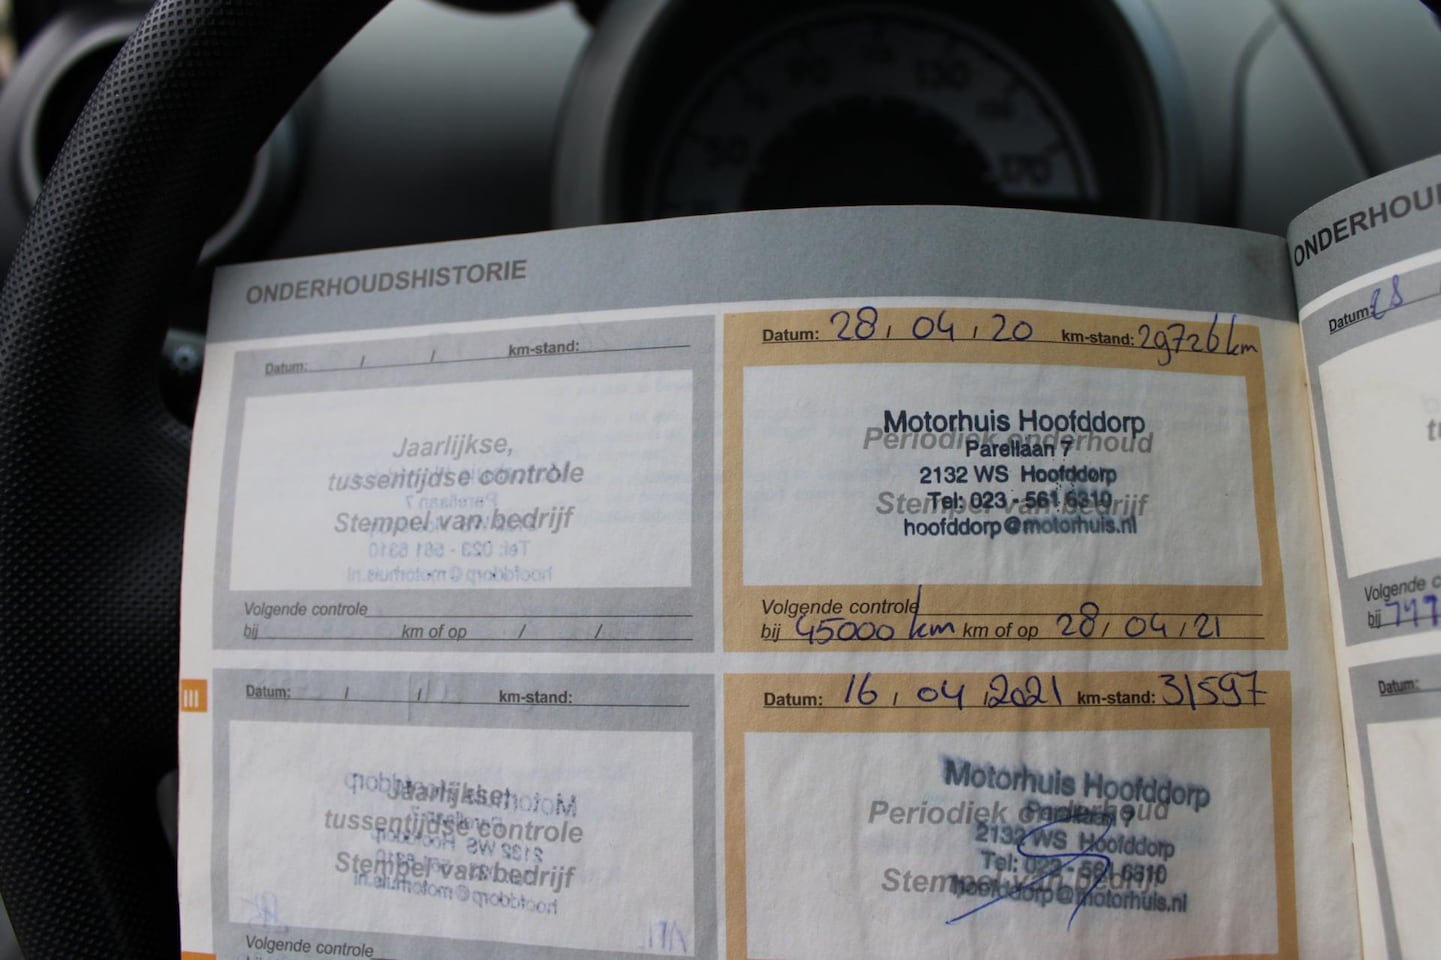 ONDERHOUDSHISTORIE
Datum: / / km-stand:
Jaarlijkse,
tussentijdse controle
Stempel van bedrijf
Volgende controle
bij km of op / /
Datum: 28 / 04 / 20 km-stand: 29726 km
Motorhuis Hoofddorp
Periodiek onderhoud
Parellaan 7
2132 WS Hoofddorp
Tel: 023 - 561 6310
Stempel van bedrijf
hoofddorp@motorhuis.nl
Volgende controle
bij 45000 km km of op 28 / 04 / 21
III
Datum: / / km-stand:
Jaarlijkse,
tussentijdse controle
Stempel van bedrijf
Volgende controle
Datum: 16 / 04 / 2021 km-stand: 31597
Motorhuis Hoofddorp
Periodiek onderhoud
Parellaan 7
2132 WS Hoofddorp
Tel: 023 - 561 6310
Stempel van bedrijf
hoofddorp@motorhuis.nl
Datum: 28
Volgende
bij
Datum:
130
170